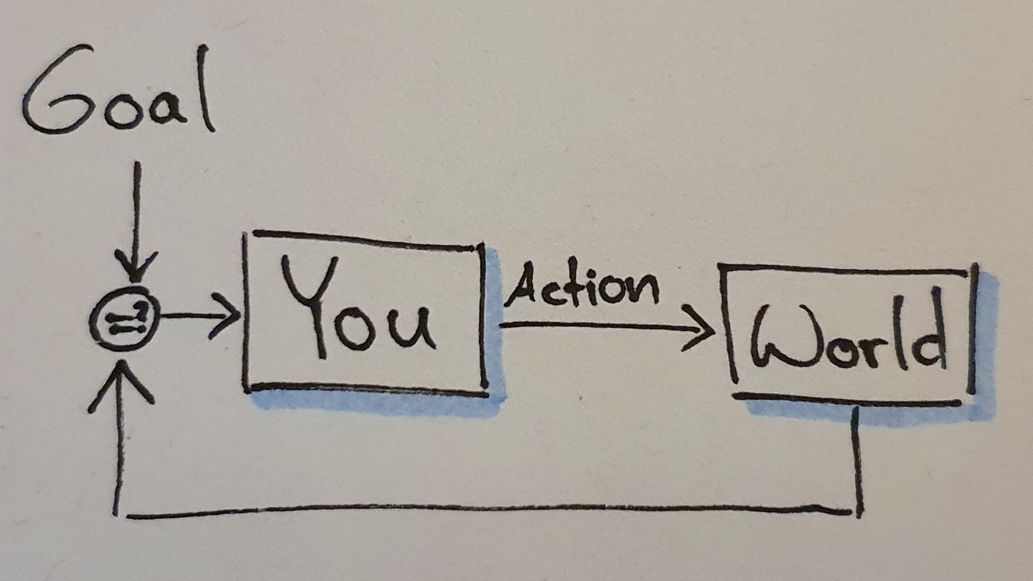 Goal
=?
You
Action
World